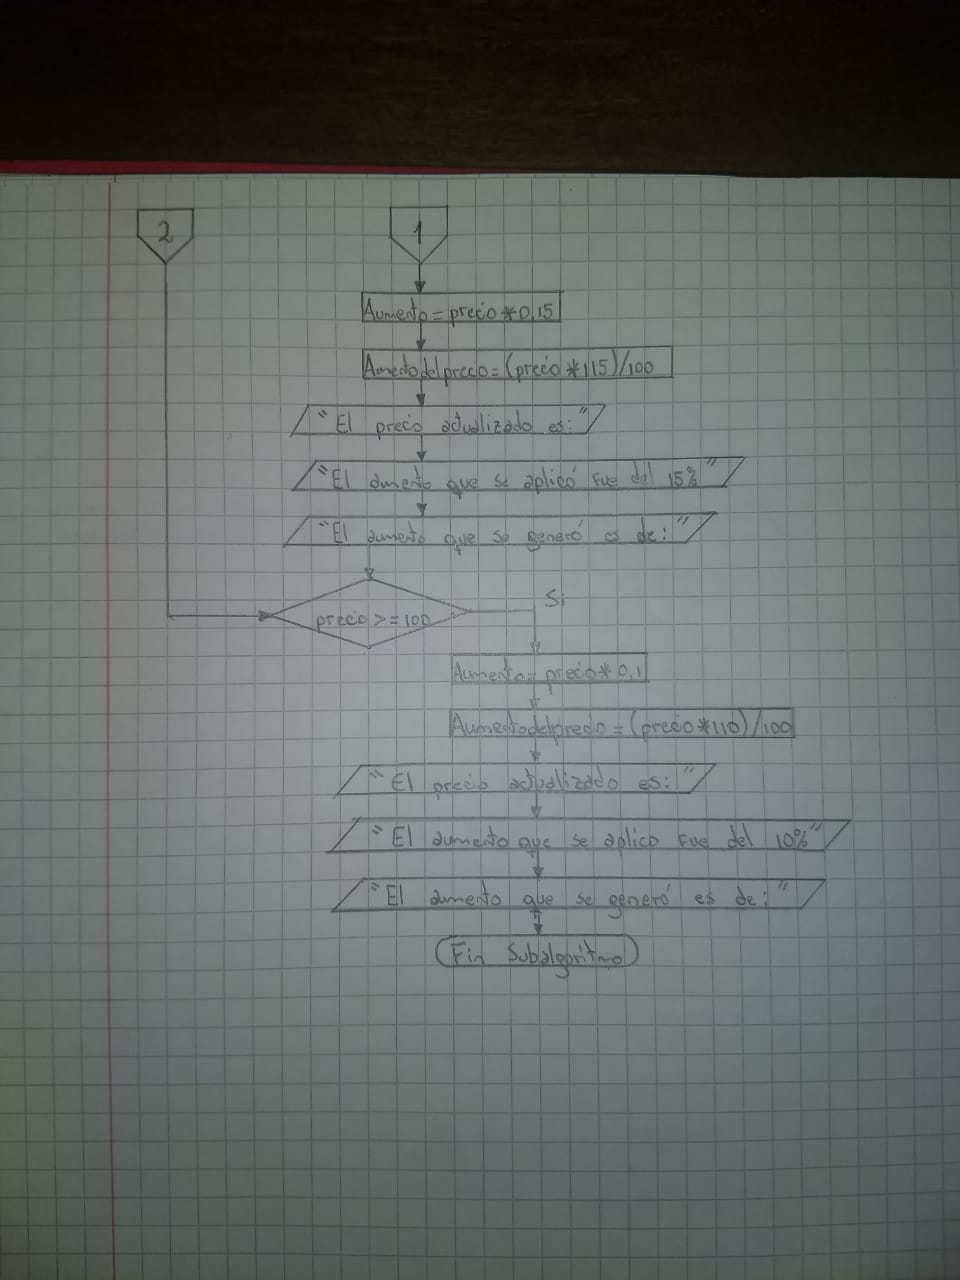 2
1
Aumento=precio*0,15
Aumentodelprecio=(precio*115)/100
"El precio actualizado es:"
"El aumento que se aplicó fue del 15%"
"El aumento que se generó es de:"
precio>=100
Si
Aumento=precio*0,1
Aumentodelprecio=(precio*110)/100
"El precio actualizado es:"
"El aumento que se aplico fue del 10%"
"El aumento que se generó es de:"
Fin Subalgoritmo